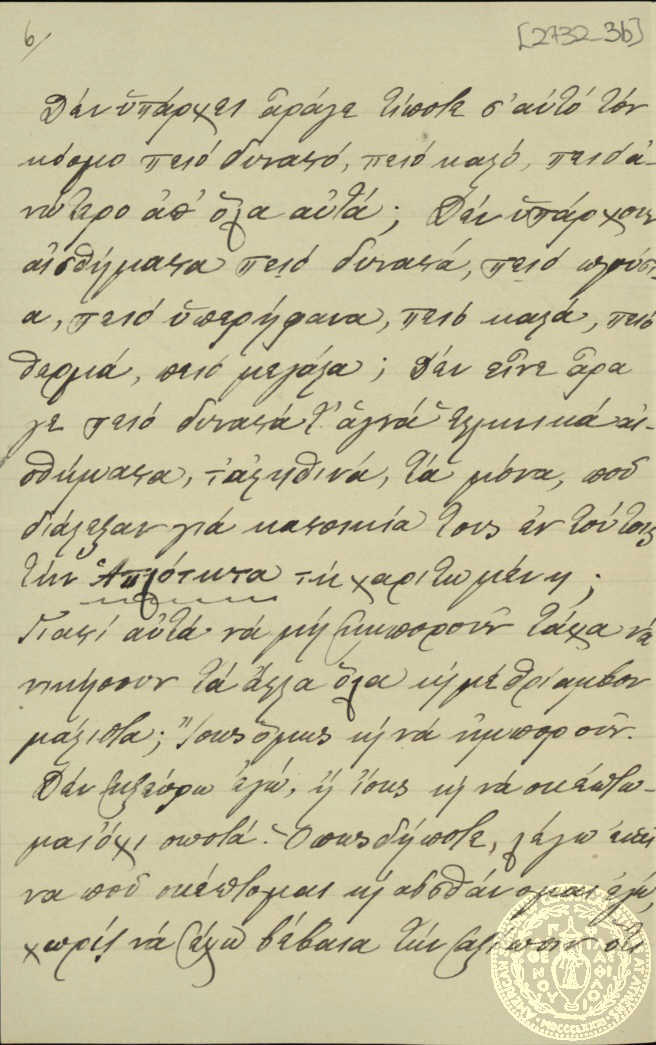 6/
[2732-3b]
Δέν ὑπάρχει ἆράγε τίποτε σ' αὐτό τόν
κόσμο πειό δυνατό, πειό καλό, πειό ἀ-
νώτερο ἀπ' ὅλα αὐτά; Δέν ὑπάρχουν
αἰσθήματα πειό δυνατά, πειό πλούσι-
α, πειό ὑπερήφανα, πειό καλά, πειό
θερμά, πειό μεγάλα; Δέν εἶνε ἆρα
γε πειό δυνατά τ' ἁγνά
σθήματα, τ' ἀληθινά, τά μόνα, πού
διάλεξαν γιά κατοικία τους ἐν τούτοις
τήν Ἁπλότητα τή χαριτωμένη;
Γιατί αὐτά νά μή ἠμποροῦν τάχα νά
νικήσουν τά ἄλλα ὅλα κή μέ θρίαμβον
μάλιστα; Ἴσως ὅμως κή νά ἠμποροῦν.
Δέν ἠξεύρω ἐγώ, ἤ ἴσως κή νά σκέπτω-
μαι ὄχι σωστά. Ὁπωσδήποτε, λέγω ἐκεῖ
να πού σκέπτομαι κή αἰσθάνομαι ἐγώ,
χωρίς νά ἔχω βέβαια τήν ἀξίωσιν ὅτι